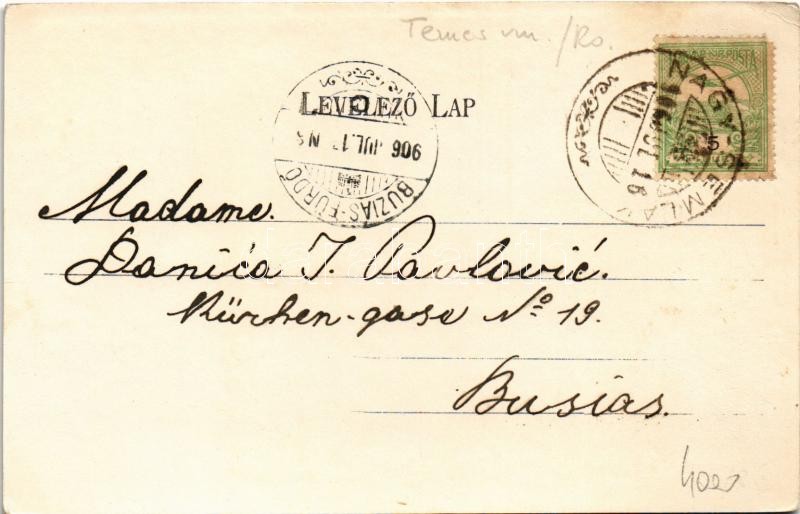 Temes vm. / Ro.
MAGYAR KIR. POSTA
5
NAGY-SEMLAK
LEVELEZŐ LAP
906 JUL. 17. N8
BUZIÁS-FÜRDŐ
Madame.
Danića J. Pavlović.
Kürhen-gase No 19.
Busias.